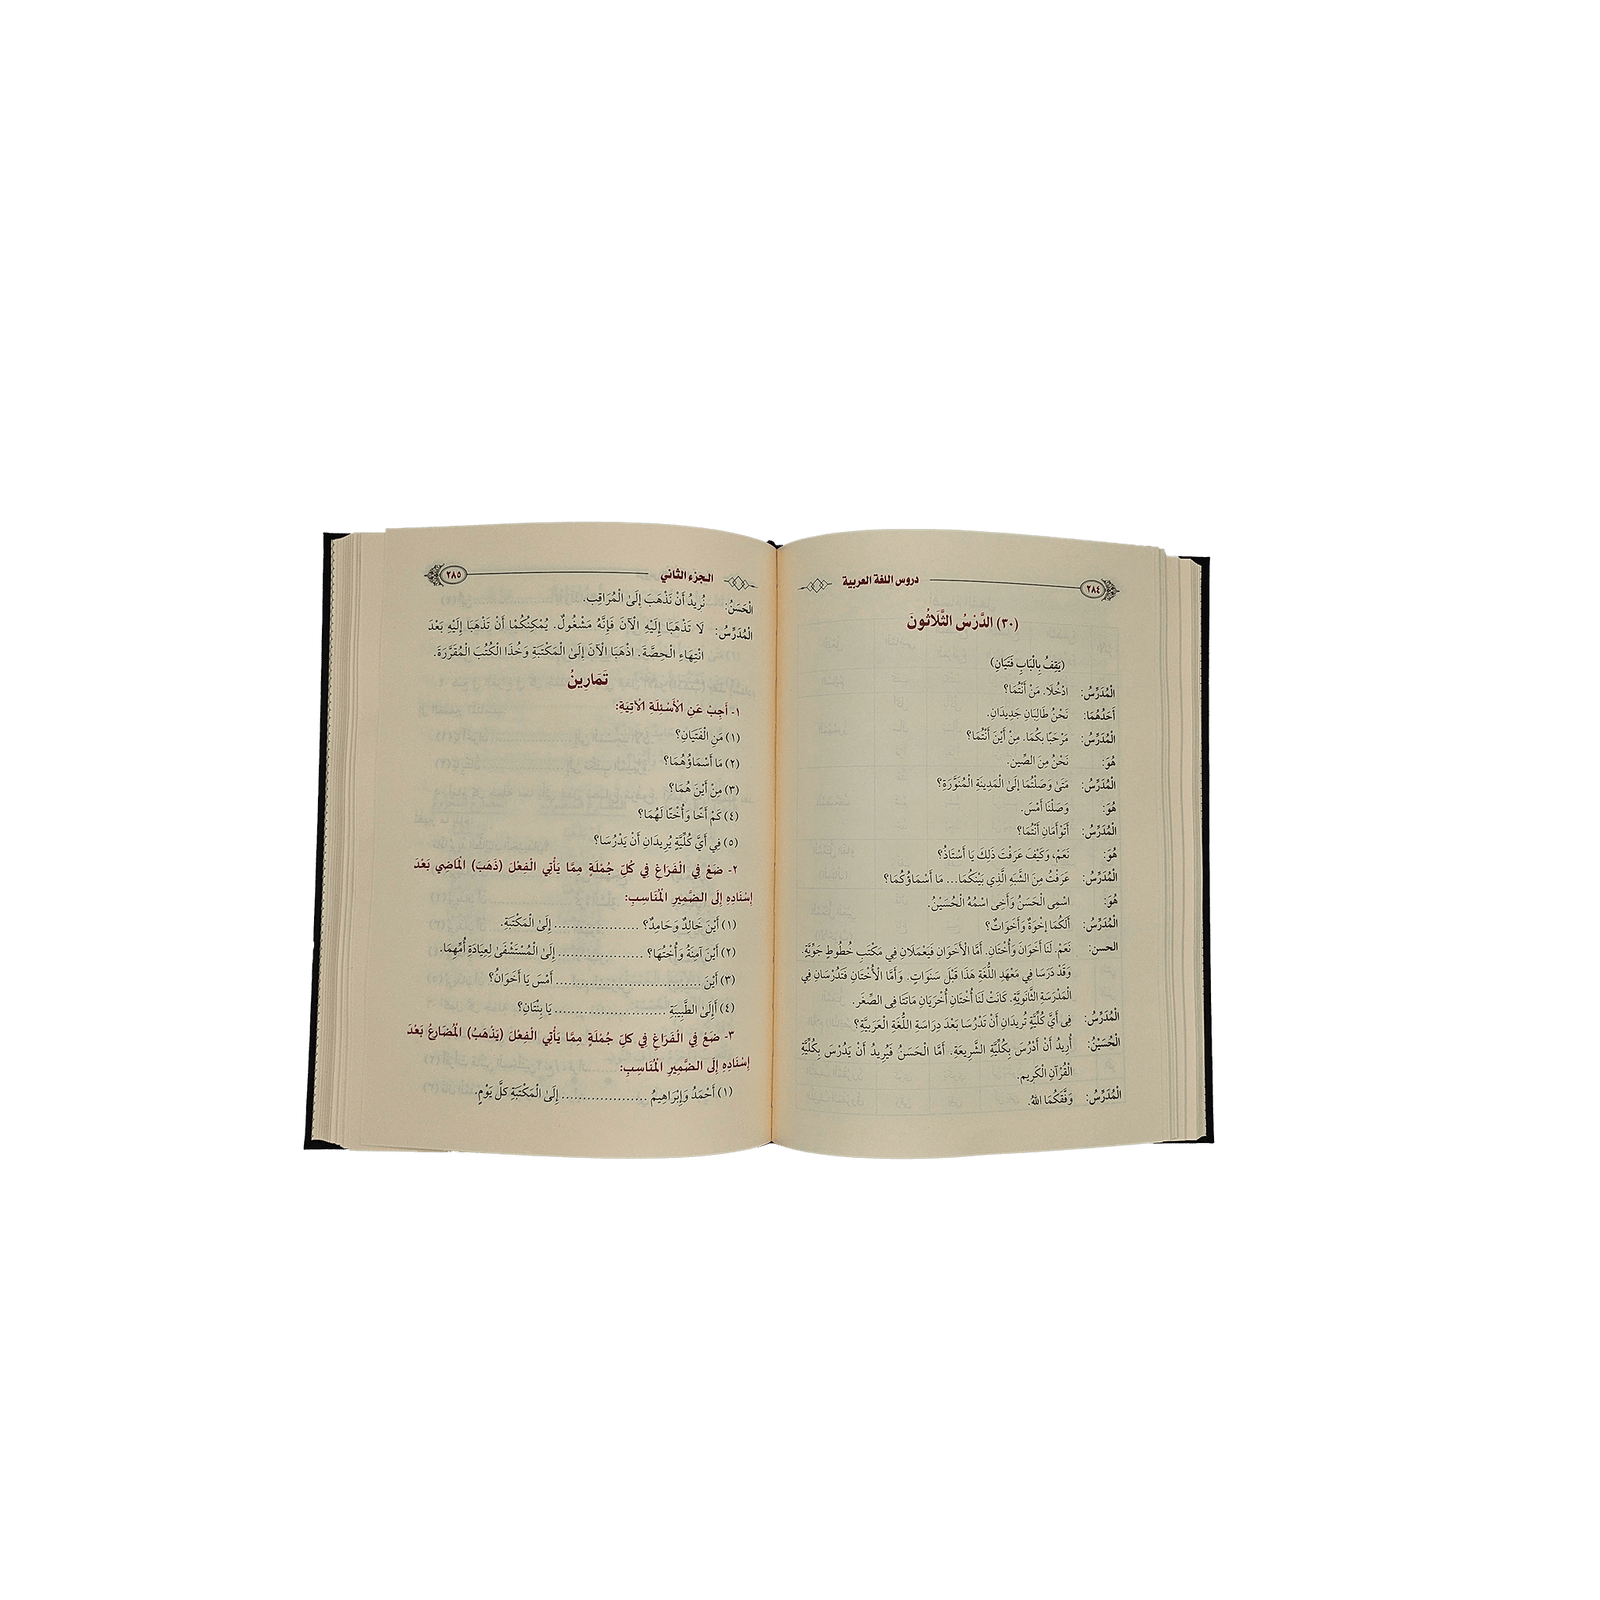 ٢٨٤
دروس اللغة العربية
(٣٠) الدَّرْسُ الثَّلَاثُونَ
(يَقِفُ بِالْبَابِ فَتَيَانِ)
الْمُدَرِّسُ: ادْخُلَا. مَنْ أَنْتُمَا؟
أَحَدُهُمَا: نَحْنُ طَالِبَانِ جَدِيدَانِ.
الْمُدَرِّسُ: مَرْحَبًا بِكُمَا. مِنْ أَيْنَ أَنْتُمَا؟
هُوَ: نَحْنُ مِنَ الصِّينِ.
الْمُدَرِّسُ: مَتَىٰ وَصَلْتُمَا إِلَىٰ الْمَدِينَةِ الْمُنَوَّرَةِ؟
هُوَ: وَصَلْنَا أَمْسَ.
الْمُدَرِّسُ: أَتَوْأَمَانِ أَنْتُمَا؟
هُوَ: نَعَمْ، وَكَيْفَ عَرَفْتَ ذَلِكَ يَا أُسْتَاذُ؟
الْمُدَرِّسُ: عَرَفْتُ مِنَ الشَّبَهِ الَّذِي بَيْنَكُمَا... مَا أَسْمَاؤُكُمَا؟
هُوَ: اسْمِي الْحَسَنُ وَأَخِي اسْمُهُ الْحُسَيْنُ.
الْمُدَرِّسُ: أَلَكُمَا إِخْوَةٌ وَأَخَوَاتٌ؟
الحسن: نَعَمْ. لَنَا أَخَوَانِ وَأُخْتَانِ. أَمَّا الْأَخَوَانِ فَيَعْمَلَانِ فِي مَكْتَبِ خُطُوطٍ جَوِّيَّةٍ.
وَقَدْ دَرَسَا فِي مَعْهَدِ اللُّغَةِ هَذَا قَبْلَ سَنَوَاتٍ. وَأَمَّا الْأُخْتَانِ فَتَدْرُسَانِ فِي
الْمَدْرَسَةِ الثَّانَوِيَّةِ. كَانَتْ لَنَا أُخْتَانِ أُخْرَيَانِ مَاتَتَا فِي الصِّغَرِ.
الْمُدَرِّسُ: فِي أَيِّ كُلِّيَّةٍ تُرِيدَانِ أَنْ تَدْرُسَا بَعْدَ دِرَاسَةِ اللُّغَةِ الْعَرَبِيَّةِ؟
الْحُسَيْنُ: أُرِيدُ أَنْ أَدْرُسَ بِكُلِّيَّةِ الشَّرِيعَةِ. أَمَّا الْحَسَنُ فَيُرِيدُ أَنْ يَدْرُسَ بِكُلِّيَّةِ
الْقُرْآنِ الْكَرِيمِ.
الْمُدَرِّسُ: وَفَّقَكُمَا اللهُ.
الـجزء الثاني
٢٨٥
الْحَسَنُ: نُرِيدُ أَنْ نَذْهَبَ إِلَىٰ الْمُرَاقِبِ.
الْمُدَرِّسُ: لَا تَذْهَبَا إِلَيْهِ الْآنَ فَإِنَّهُ مَشْغُولٌ. يُمْكِنُكُمَا أَنْ تَذْهَبَا إِلَيْهِ بَعْدَ
انْتِهَاءِ الْحِصَّةَ. اذْهَبَا الْآنَ إِلَىٰ الْمَكْتَبَةِ وَخُذَا الْكُتُبَ الْمُقَرَّرَةَ.
تَمَارِينُ
١- أَجِبْ عَنِ الْأَسْئِلَةِ الْآتِيَةِ:
(١) مَنِ الْفَتَيَانِ؟
(٢) مَا أَسْمَاؤُهُمَا؟
(٣) مِنْ أَيْنَ هُمَا؟
(٤) كَمْ أَخًا وَأُخْتًا لَهُمَا؟
(٥) فِي أَيِّ كُلِّيَّةٍ يُرِيدَانِ أَنْ يَدْرُسَا؟
٢- ضَعْ فِي الْفَرَاغِ فِي كُلِّ جُمْلَةٍ مِمَّا يَأْتِي الْفِعْلَ (ذَهَبَ) الْمَاضِي بَعْدَ
إِسْنَادِهِ إِلَى الضَّمِيرِ الْمُنَاسِبِ:
(١) أَيْنَ خَالِدٌ وَحَامِدٌ؟ .................... إِلَىٰ الْمَكْتَبَةِ.
(٢) أَيْنَ آمِنَةُ وَأُخْتُهَا؟ .................... إِلَىٰ الْمُسْتَشْفَىٰ لِعِيَادَةِ أُمِّهِمَا.
(٣) أَيْنَ .................................. أَمْسَ يَا أَخَوَانُ؟
(٤) أَإِلَىٰ الطَّبِيبَةِ .......................... يَا بِنْتَانِ؟
٣- ضَعْ فِي الْفَرَاغِ فِي كلِّ جُمْلَةٍ مِمَّا يَأْتِي الْفِعْلَ (يَذْهَبُ) الْمُضَارِعُ بَعْدَ
إِسْنَادِهِ إِلَى الضَّمِيرِ الْمُنَاسِبِ:
(١) أَحْمَدُ وَإِبْرَاهِيمُ .................... إِلَىٰ الْمَكْتَبَةِ كلَّ يَوْمٍ.